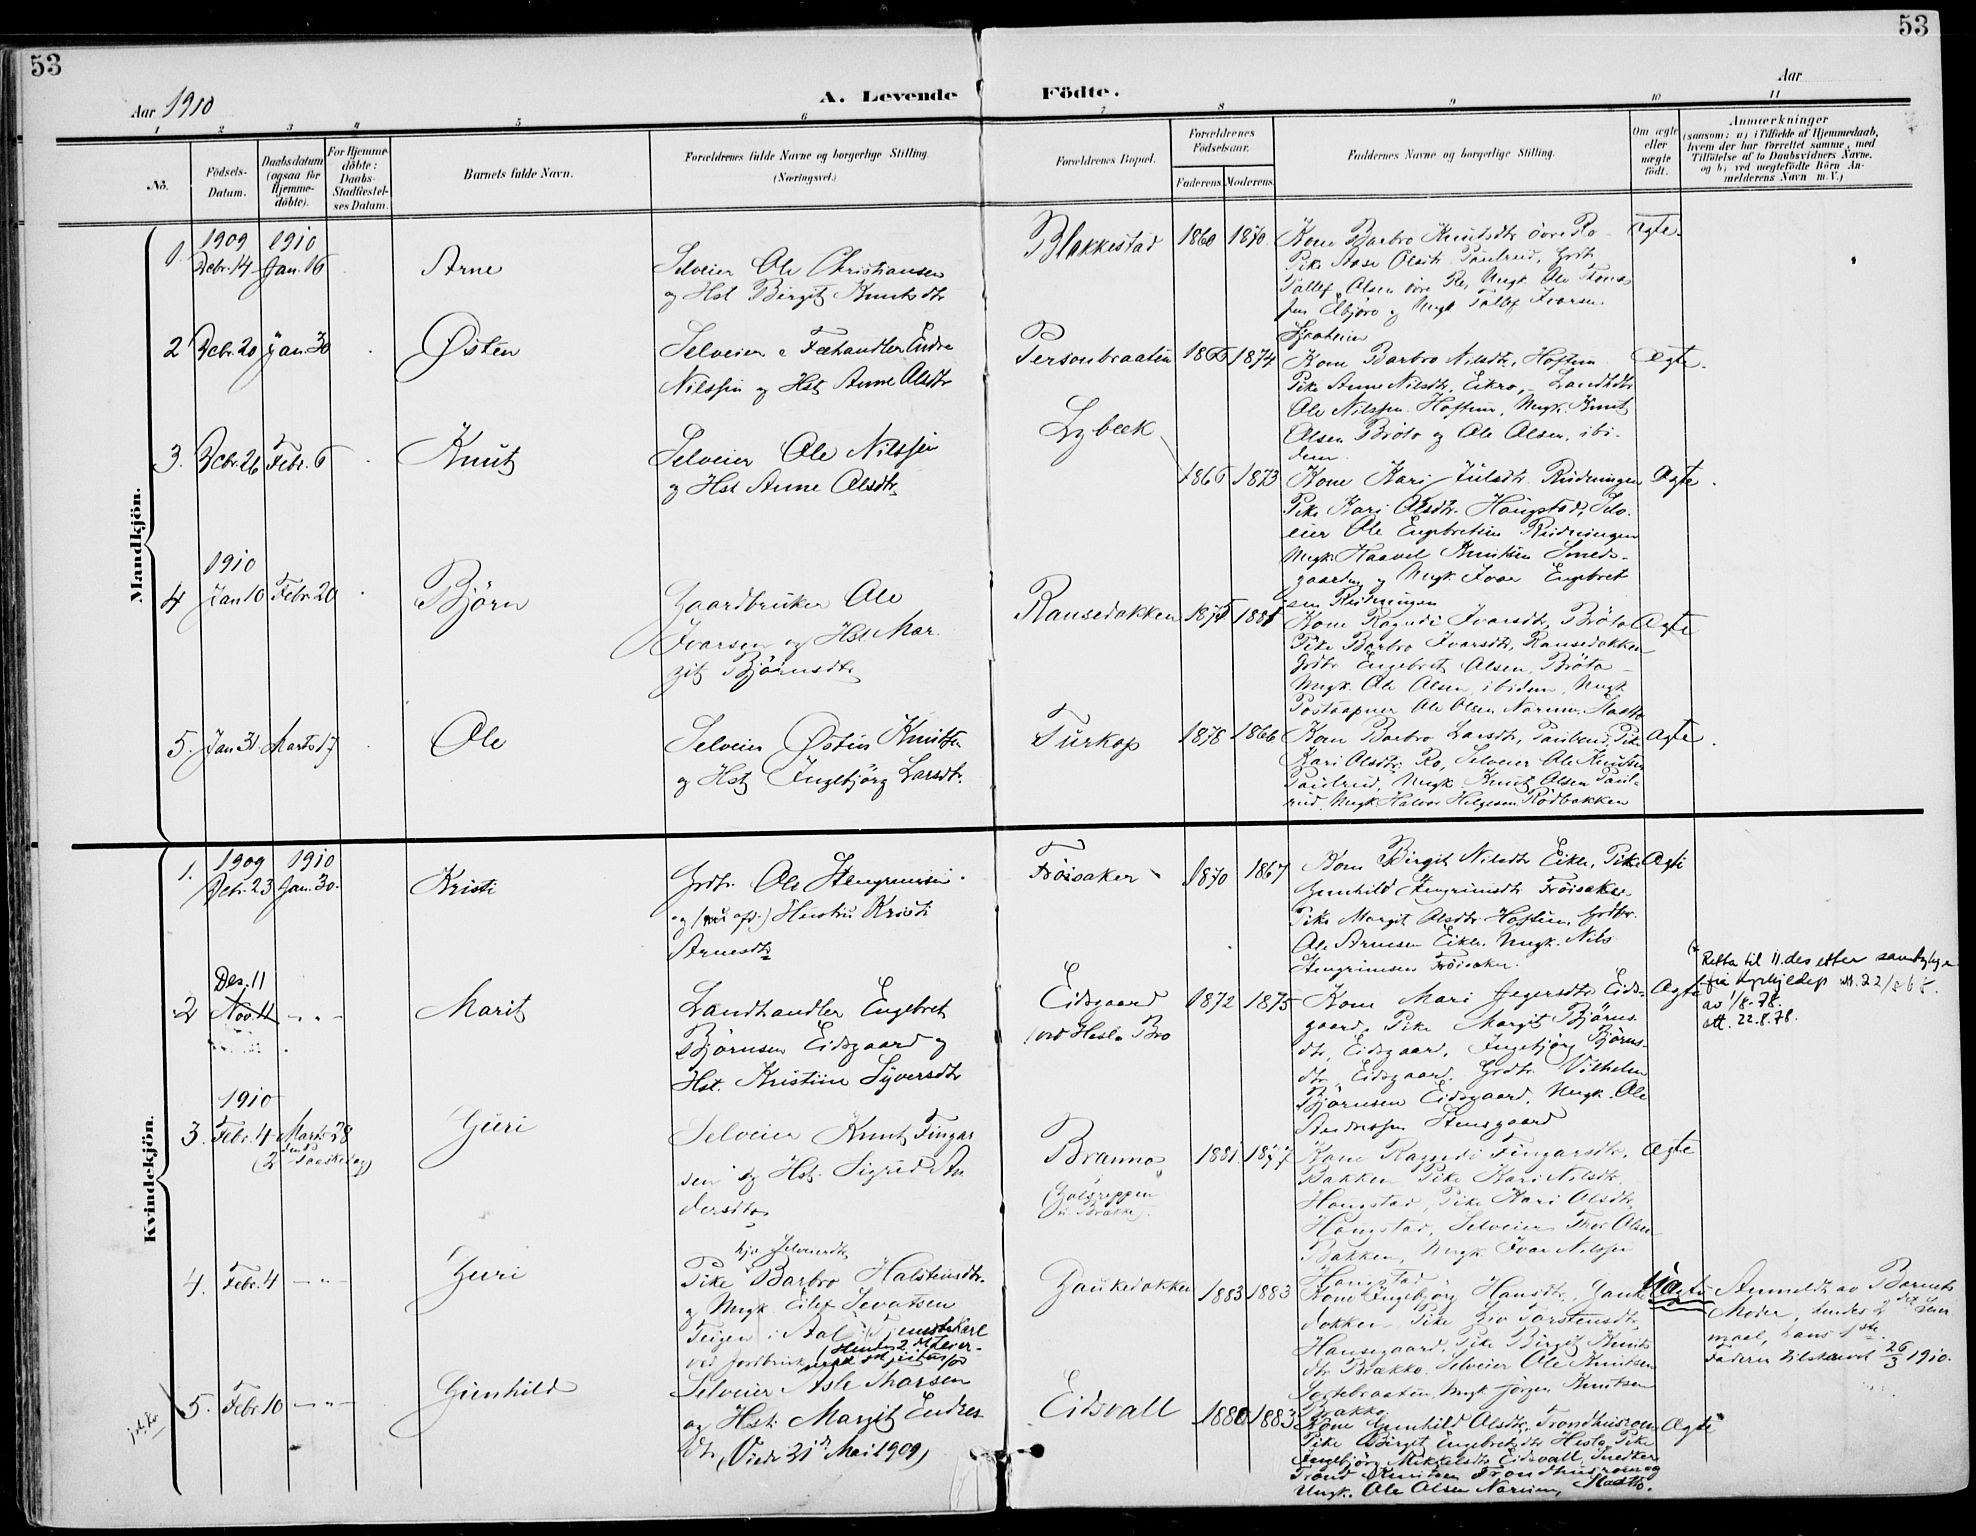 53
53
Aar 1910
A. Levende
Födte.
Aar
1
2
3
4
5
6
7
8
9
10
11
No.
Födsels-
Datum.
Daabsdatum
(ogsaa for
Hjemme-
döbte).
For Hjemme-
döbte:
Daabs-
Stadfæstel-
ses Datum.
Barnets fulde Navn.
Forældrenes fulde Navne og borgerlige Stilling.
(Næringsvei.)
Forældrenes Bopæl.
Forældrenes
Födselsaar.
Faderens.
Moderens.
Faddernes Navne og borgerlige Stilling.
Om ægte
eller
uægte
födt.
Anmærkninger
(saasom: a) i Tilfælde af Hjemmedaab,
hvem der har forrettet samme, med
Tilföielse af to Daabsvidners Navne.
og b) ved uægtefödte Börn An-
melderens Navn m. V.)
Mandkjön.
1.
1909
Dcbr. 14
1910
Jan. 16
Arne
Selveier Ole Christiansen
og Hst Birgit Knutsdtr
Blakkestad
1860
1870
Kone Barbro Knutsdtr övre Ro
Pike Aase Olsdtr Paulrud, Grdbr
Tollef Olsen övre Ro, Ungk Ole
Ungk Tollef Ivarsen
Ægte.
2
Dcbr. 20
Jan. 30
Østen
Selveier & Fæhandler Endre
Nilssen og Hst. Anne Olsdtr
Personbraaten
1866
1874
Kone Barbro Nilsdtr, Hoftun
Pike Anne Nilsdtr, Eikro, Landhdlr
Ole Nilssen Hoftun, Ungk. Knut
Olsen Bröto og Ole Olsen, ibi-
dem
Ægte.
3.
Dcbr. 26
Febr. 6
Knut
Selveier Ole Nilssen
og Hst Anne Olsdtr
Lybeck
1866
1873
Kone Kari Julsdtr Rudningen
Pike Kari Olsdtr. Haugstad, Selv-
eier Ole Engebretsen Rudningen
Ungk. Haavel Knutsen Smeds-
gaarden og Ungk. Ivar Engebret
sen Rudningen
Ægte.
4
1910
Jan 10
Febr. 20
Björn
Gaardbruker Ole
Ivarsen og Hst. Mar-
git Björnsdtr
Ransedokken
1875
1881
Kone Ragndi Ivarsdtr, Bröto
Pike Barbro Ivarsdtr, Ransedokken
Grdbr Engebret Olsen, Bröto
Ungk. Ole Olsen, ibidem, Ungk
Postaapner Ole Olsen Narum
Ægte
5.
Jan 31
Marts 17
Ole
Selveier Østen Knutsen
og Hst Ingebjörg Larsdtr.
Turkop
1878
1866
Kone Barbro Larsdtr, Paulrud, Pike
Kari Olsdtr. Ro, Selveier Ole Knutsen
Paulrud, Ungk. Knut Olsen Paul-
rud, Ungk Halvor Helgesen Rödbakken
Ægte.
Kvindekjön.
1.
1909
Dcbr. 23
1910
Jan. 30.
Kristi
Grdbr. Ole Stengrimsen
og (nu afd.) Hustru Kristi
Arnesdtr
Fröisaker
1870
1867
Kone Birgit Nilsdtr Eikle, Pike
Gunhild Stengrimsdtr Fröisaker
Pike Margit Olsdtr Hoftun, Grdbr.
Ole Arnesen Eikle, Ungk. Nils
Stengrimsen Fröisaker.
Ægte
2
Des. 11
Nov. 11
- " -
Marit
Landhandler Engebret
Björnsen Eidsgaard og
Hst. Kristine Syversdtr
Eidsgaard
(ved Hesla Bro
1872
1875
Kone Mari Jegersdtr Eids-
gaard, Pike Margit Björns
dtr, Eidsgaard, Ingebjörg Björns-
dtr, Eidsgaard, Grdbr. Vilhelm
Björnsen Eidsgaard, Ungk. Ole
Andersen Stensgaard
Ægte
Retta til 11. des etter samtykke
fra Kyrkjedep
av 1/8-78.
att. 22.8.78.
3.
1910
Febr. 4
Marts 28
(2den Paaskedag)
Guri
Selveier Knut Fingar
sen og Hst. Sigrid An
dersdtr
Branno
1881
1877
Kone Ragndi Fingarsdtr,
Bakken, Pike Kari Nilsdtr.
Haugstad, Pike Kari Olsdtr,
Haugstad, Selveier Thor Olsen
Bakken, Ungk Ivar Nilssen
Haugstad
Ægte
4.
Febr. 4
- " -
Guri
Pike Barbro Halstensdtr.
og Ungk. Eilef Sevatsen
Teigen i Aal, Tjenestekarl
ved Jordbruk
Gaukedokken
1883
1883
Kone Ingebjörg Hansdtr, Gauke
dokken, Pike Liv Torstensdtr,
Hansegaard, Pike Birgit Knuts
dtr Brakko, Selveier Ole Knutsen
Sortebraaten, Ungk Jörgen Knutsen
Brakko.
Uægte
Anmeldt av Barnets
Moder, hendes 2det Leier
maal, hans 1ste.
Faderen tilskrevet 26/3 1910.
5.
Febr 10
- " -
Gunhild
Selveier Asle Larsen
og Hst. Margit Endres
dtr (Viede 21de Mai 1909)
Eidsvall
1880
1883
Kone Gunhild Olsdtr, Trondhusmoen
Pike Birgit Engebretsdtr Hesla, Pike
Ingebjörg Mikkelsdtr Eidsvall, Snedker
Trond Knutsen Trondhusmoen og
Ungk. Ole Olsen Narum
Ægte